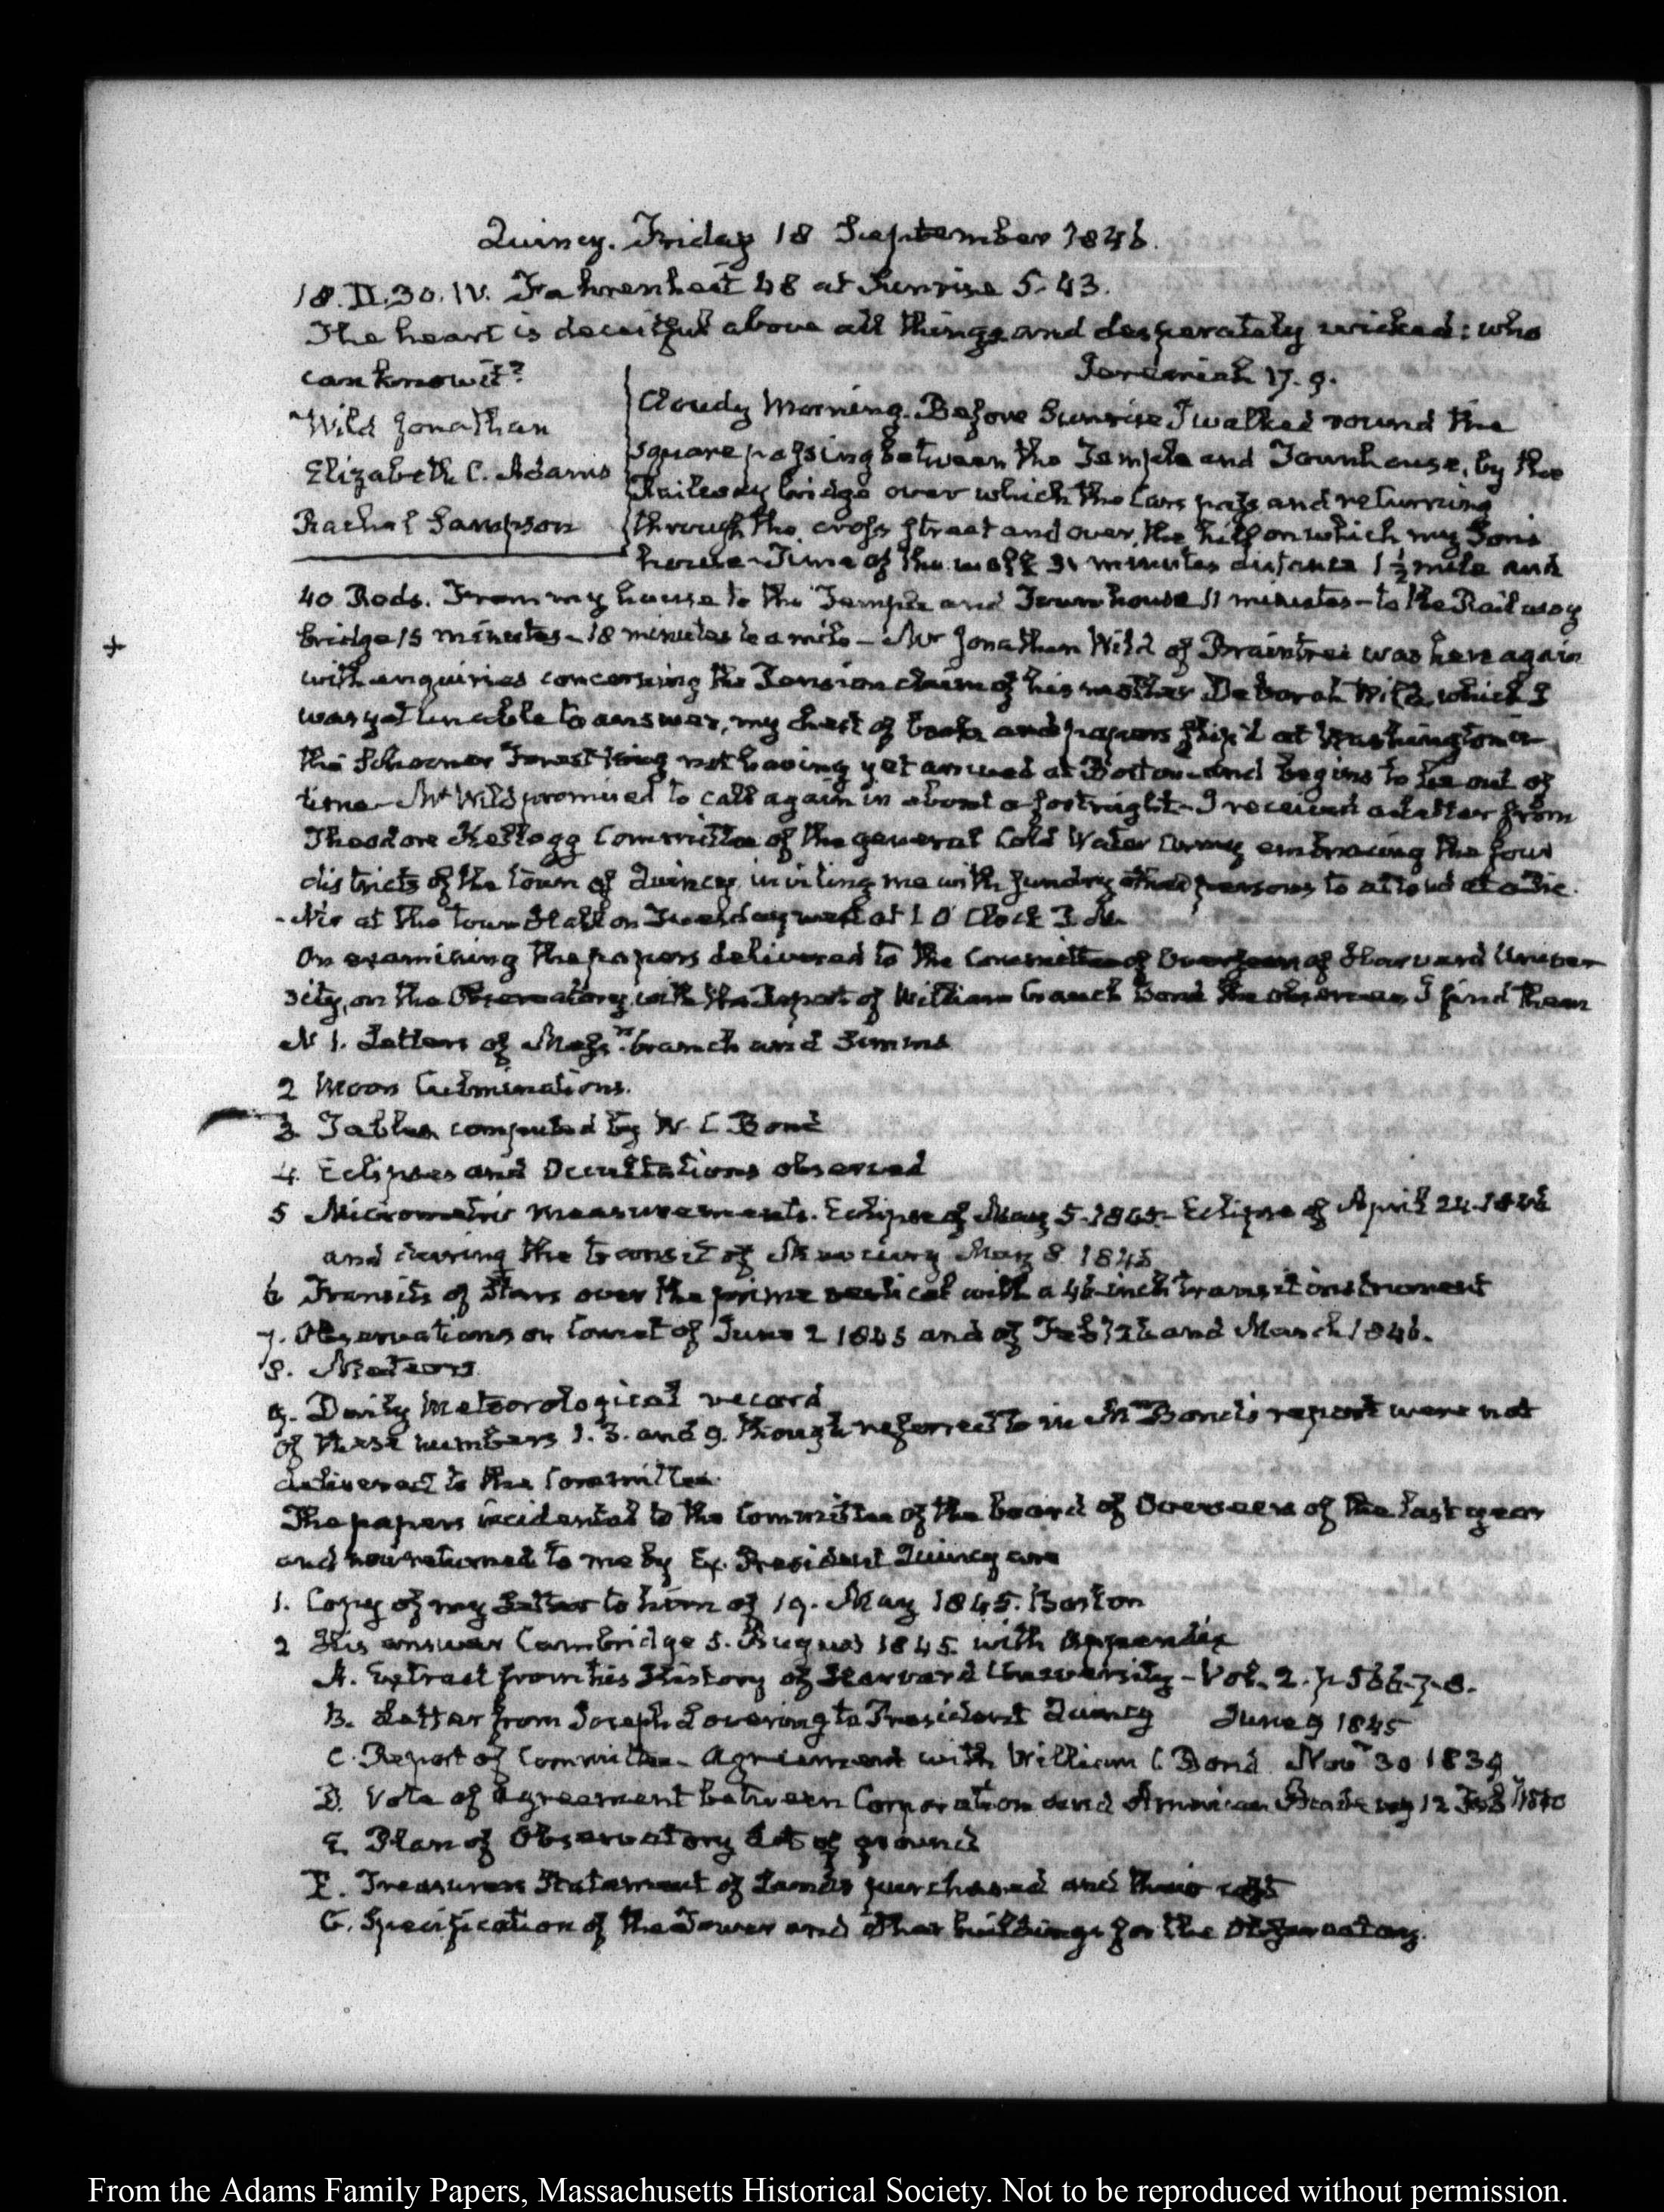 Quincy. Friday 18 September 1846.
18. II.30. IV. Fahrenheit 48 at Sunrise 5.43.
The heart is deceitful above all things and desperately wicked: who
can know it? Jeremiah 17. 9.
Wild Jonathan
Elizabeth C. Adams
Rachel Sampson
Cloudy Morning. Before Sunrise I walked round the
square passing between the Temple and Townhouse, by the
Railway bridge over which the Cars pass and returning
through the cross street and over the hill on which my Sons
house—Time of the walk 31 minutes distance 1½ mile and
40 Rods. From my house to the Temple and Townhouse 11 minutes—to the Railway
bridge 15 minutes—18 minutes to a mile—Mr Jonathan Wild of Braintree was here again
with enquiries concerning the Pension claim of his mother Deborah Wild, which I
was yet unable to answer, my chest of books and papers ship'd at Washington in
the Schooner Forest King not having yet arrived at Boston—and begins to be out of
time—Mr Wild promised to call again in about a fortnight—I received a letter from
Theodore Kellogg Committee of the general Cold Water Army embracing the four
districts of the town of Quincy, inviting me with sundry other persons to attend at a Pic
-Nic at the town Hall on Tuesday next at 1 O'Clock P.M.
On examining the papers delivered to the Committee of Overseers of Harvard Univer
sity, on the Observatory, with the Report of William Cranch Bond the observer, I find them
N 1. Letters of Messrs. Cranch and Simms
2 Moon Culminations.
3. Tables computed by W. C Bond
4. Eclipses and Occultations observed
5 Micrometric measurements. Eclipse of May 5. 1845—Eclipse of April 24. 1846
and during the transit of Mercury May 8. 1845
6 Transits of Stars over the prime vertical with a 46-inch transit instrument
7. Observations on Comet of June 2 1845 and of Feby 26 and March 1846.
8. Meteors
9. Daily Meteorological record
of these numbers 1. 3. and 9. though referred to in Mr Bond's report were not
delivered to the Committee.
The papers incidental to the Committee of the board of Overseers of the last year
and now returned to me by Ex. President Quincy are
1. Copy of my Letter to him of 19. May 1845. Boston
2 His answer Cambridge 5. August 1845. with Appendix
A. Extract from his History of Harvard University—Vol. 2. p 566-7-8.
B. Letter from Joseph Lovering to President Quincy June 9 1845
C. Report of Committee—Agreement with William C Bond. Novr 30 1839
D. Vote of Agreement between Corporation and American Academy 12 Feby 1840
E. Plan of Observatory Lot of ground
F. Treasurers Statement of Lands purchased and their cost
G. Specification of the Tower and other buildings for the Observatory.
From the Adams Family Papers, Massachusetts Historical Society. Not to be reproduced without permission.